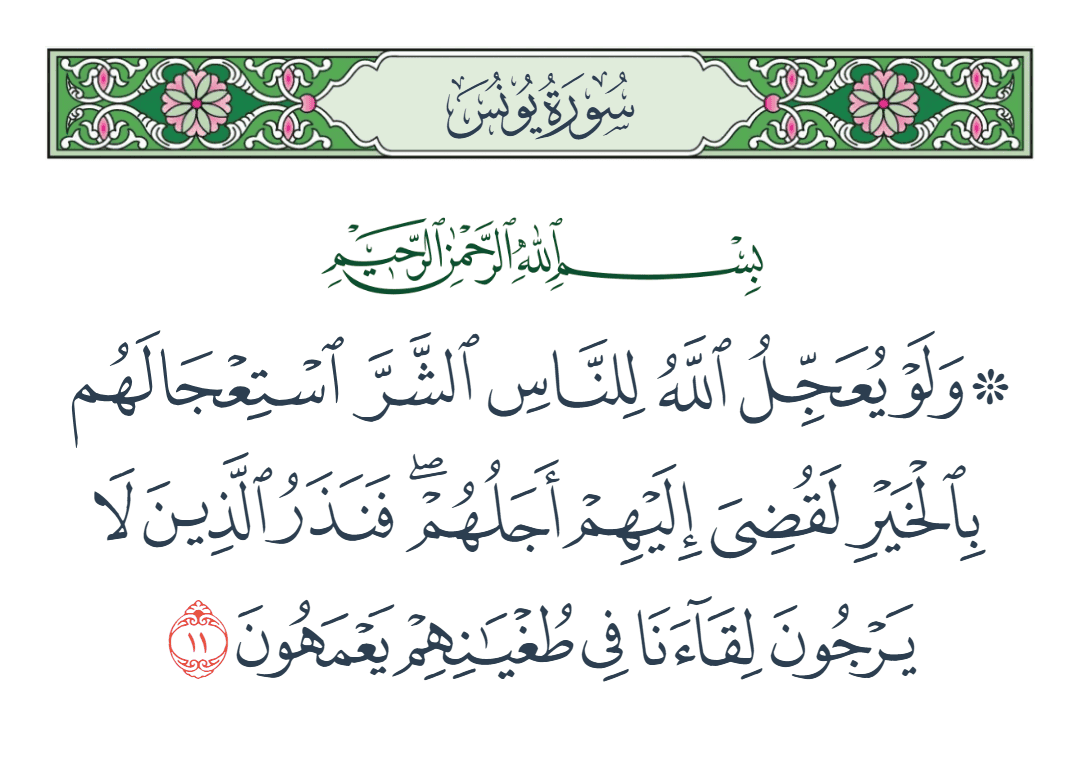 سُورَةُ يُونُسَ
بِسْمِ ٱللَّهِ ٱلرَّحْمَٰنِ ٱلرَّحِيمِ
۞ وَلَوْ يُعَجِّلُ ٱللَّهُ لِلنَّاسِ ٱلشَّرَّ ٱسْتِعْجَالَهُم
بِٱلْخَيْرِ لَقُضِىَ إِلَيْهِمْ أَجَلُهُمْ ۖ فَنَذَرُ ٱلَّذِينَ لَا
يَرْجُونَ لِقَآءَنَا فِى طُغْيَـٰنِهِمْ يَعْمَهُونَ ١١